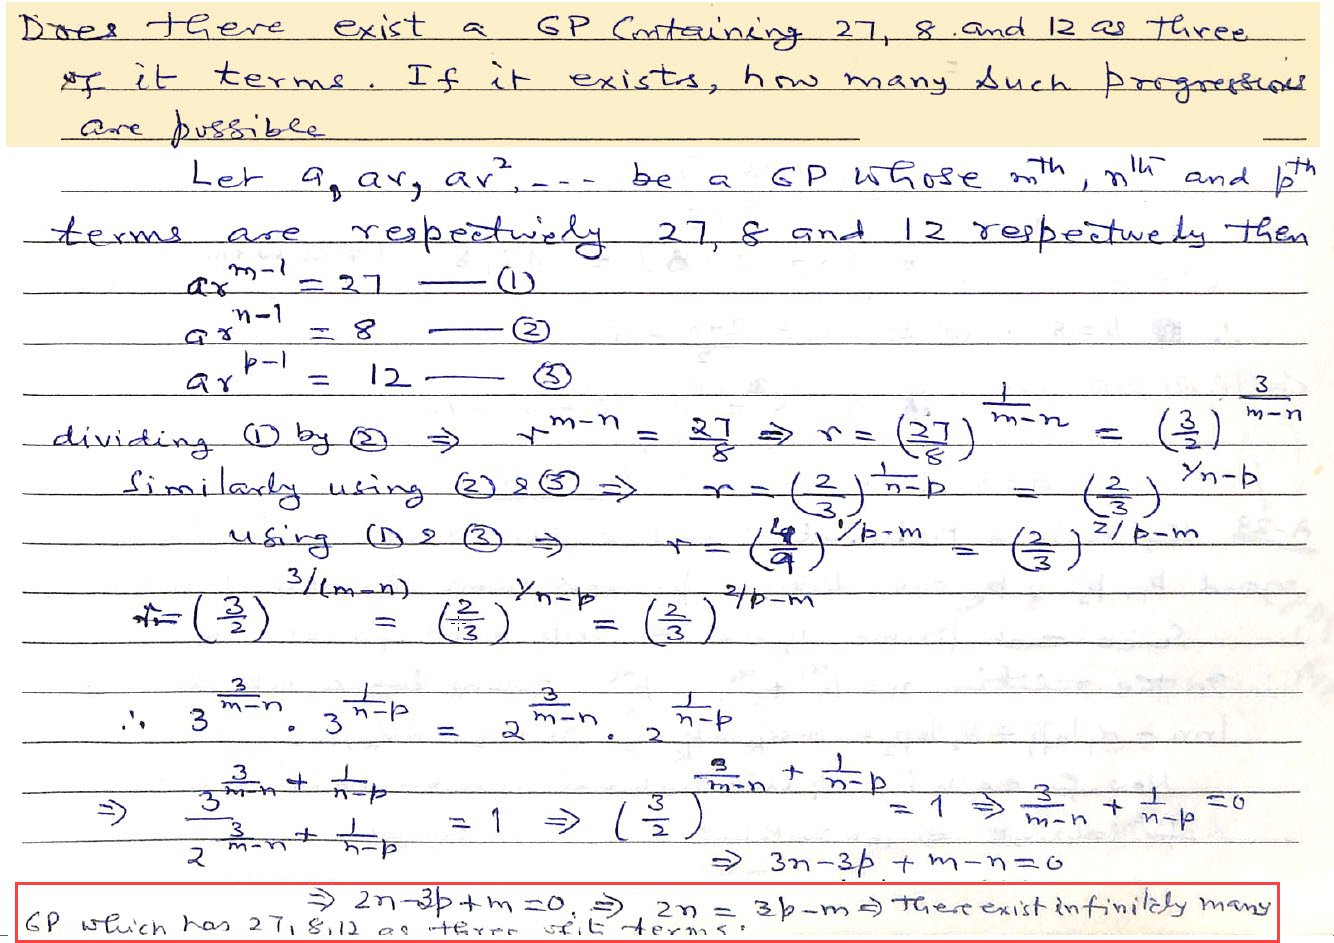 Does there exist a GP Containing 27, 8 and 12 as three
of it terms. If it exists, how many such progressions
are possible
Let a, ar, ar², ---- be a GP whose mth, nth and pth
terms are respectively 27, 8 and 12 respectively then
ar^(m-1) = 27 —— (1)
ar^(n-1) = 8 —— (2)
ar^(p-1) = 12 —— (3)
dividing (1) by (2) ⇒ r^(m-n) = 27/8 ⇒ r = (27/8)^(1/(m-n)) = (3/2)^(3/(m-n))
Similarly using (2) & (3) ⇒ r = (2/3)^(1/(n-p)) = (2/3)^(1/n-p)
using (1) & (3) ⇒ r = (4/9)^(1/p-m) = (2/3)^(2/p-m)
r = (3/2)^(3/(m-n)) = (2/3)^(1/n-p) = (2/3)^(2/p-m)
∴ 3^(3/(m-n)) . 3^(1/(n-p)) = 2^(3/(m-n)) . 2^(1/(n-p))
⇒ 3^(3/(m-n) + 1/(n-p)) / 2^(3/(m-n) + 1/(n-p)) = 1 ⇒ (3/2)^(3/(m-n) + 1/(n-p)) = 1 ⇒ 3/(m-n) + 1/(n-p) = 0
⇒ 3n-3p + m-n = 0
⇒ 2n-3p+m=0. ⇒ 2n = 3p-m ⇒ There exist infinitely many
GP which has 27, 8, 12 as three of it terms.